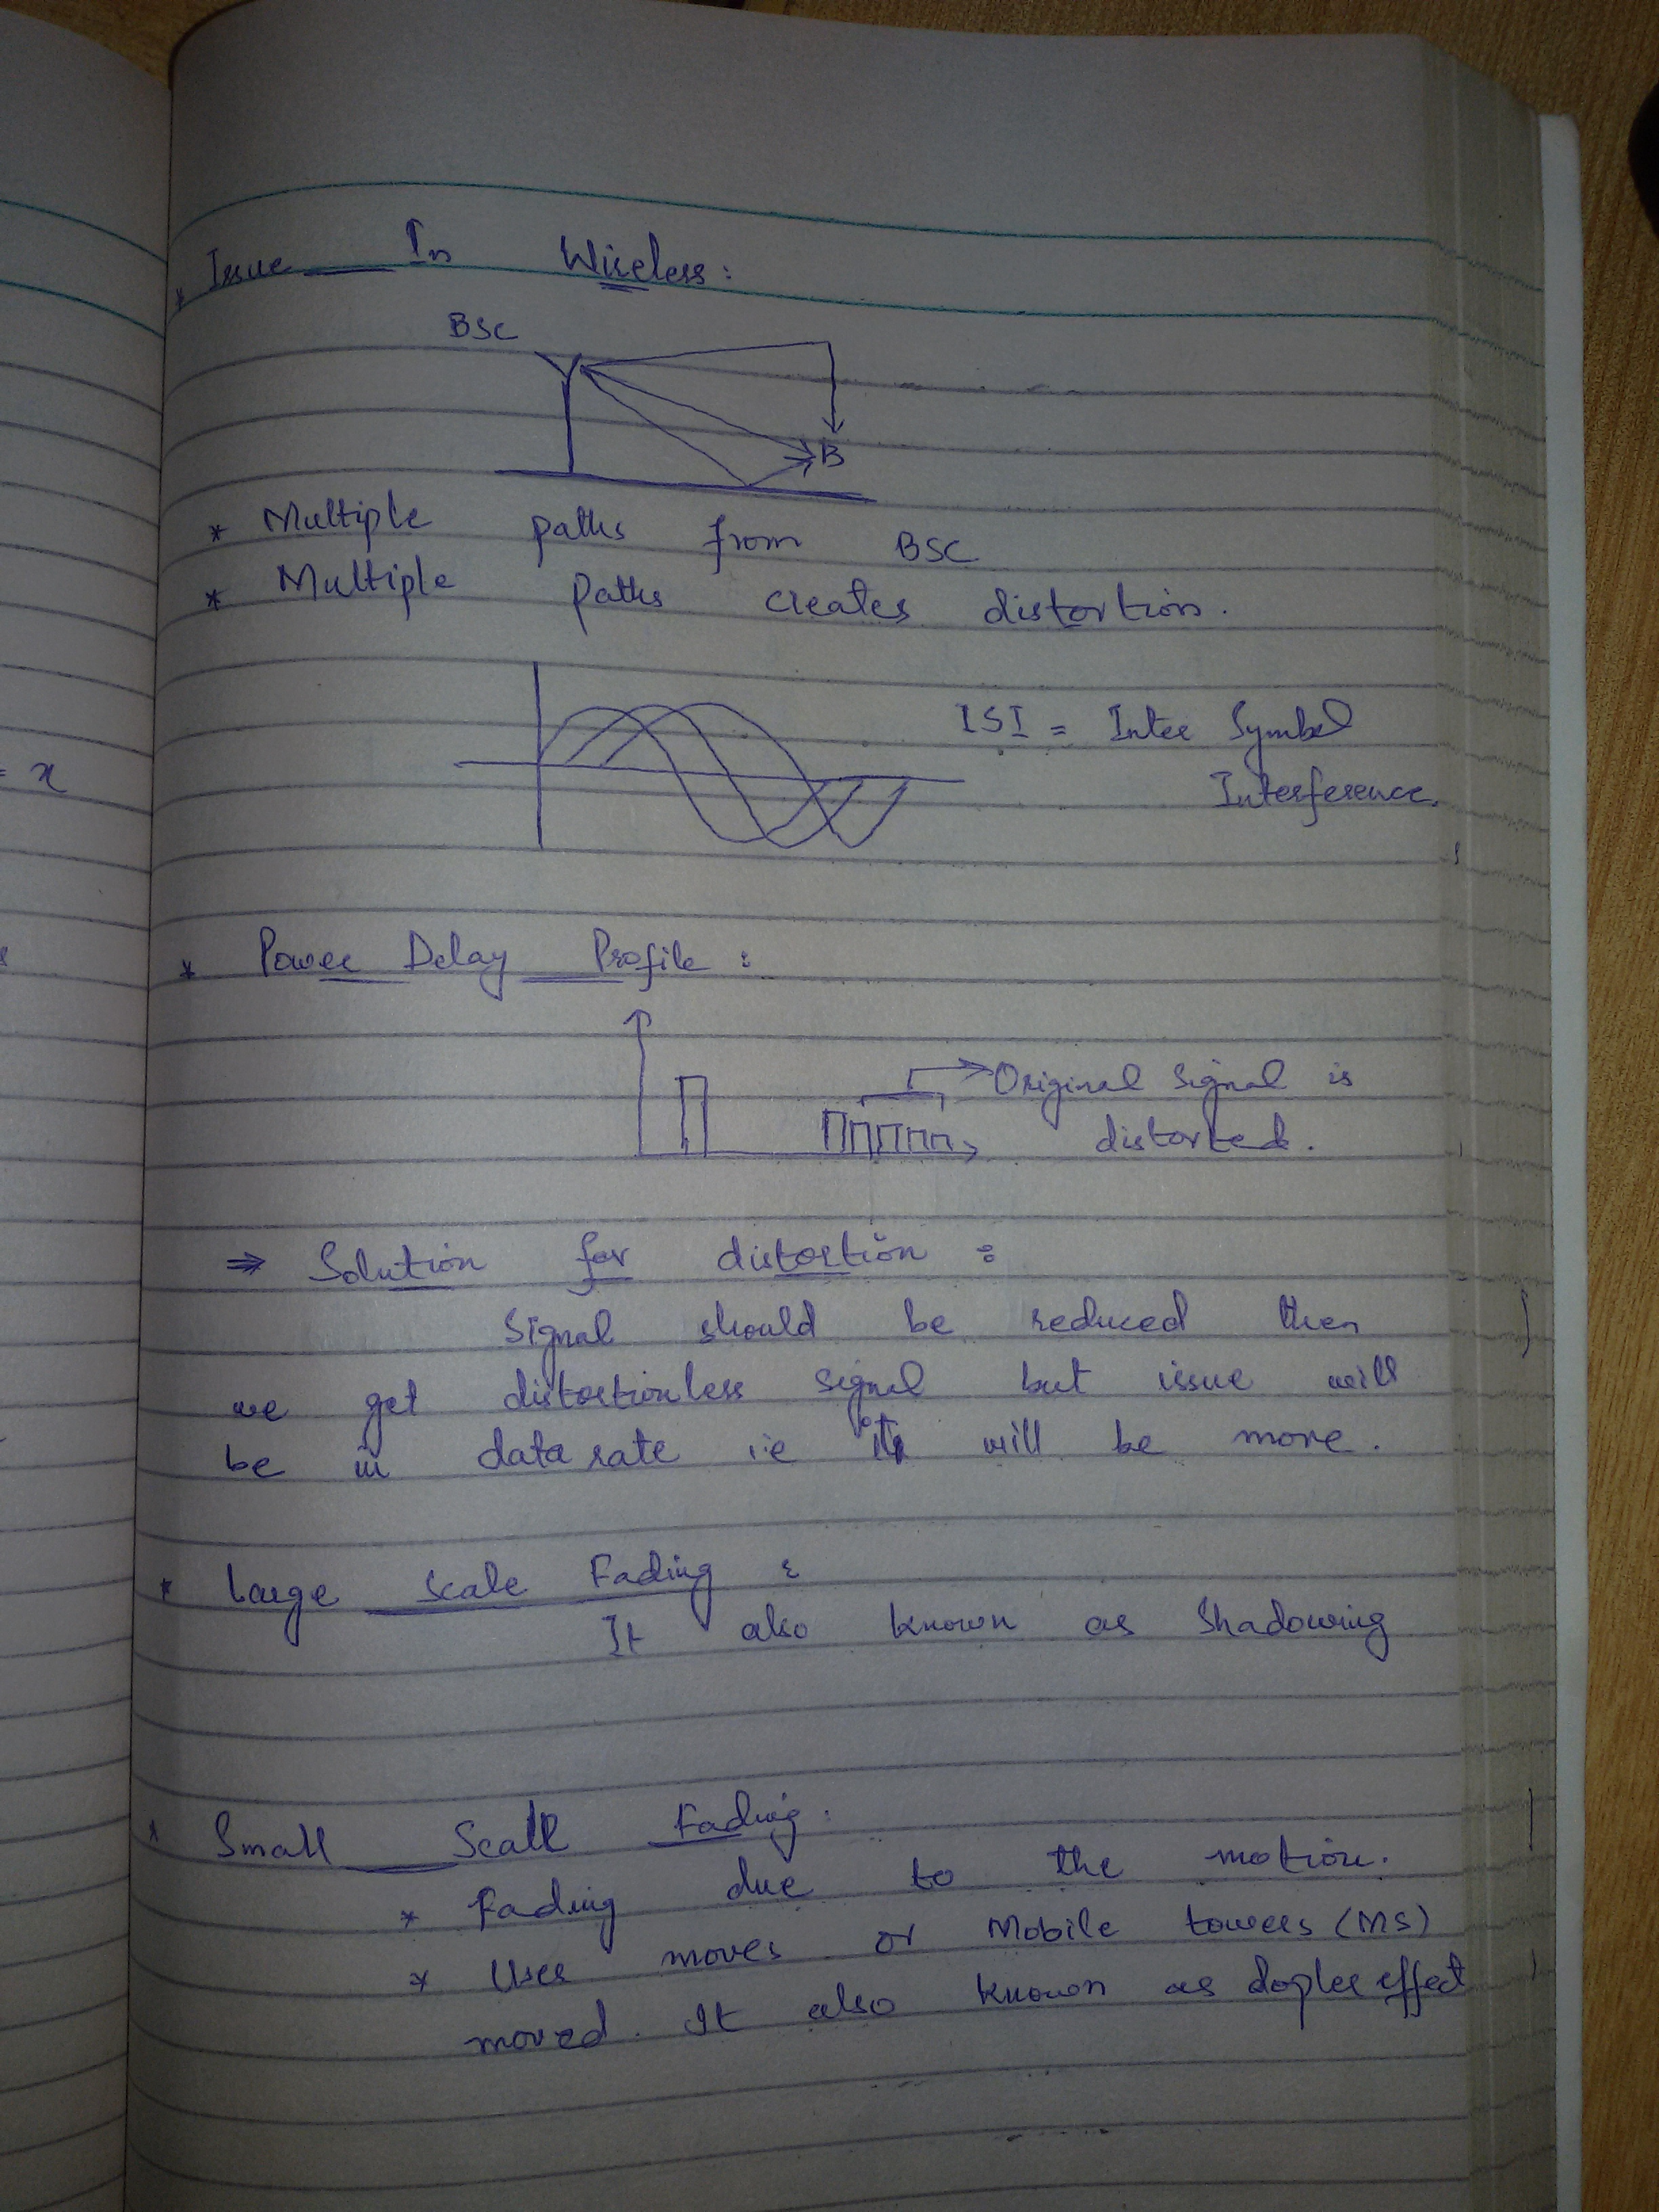 * Issue In Wireless:
BSC
B
* Multiple paths from BSC
* Multiple paths creates distortion.
ISI = Inter Symbol
Interference.
= x
* Power Delay Profile :
Original Signal is
distorted.
⇒ Solution for distortion :
Signal should be reduced then
we get distortionless signal but issue will
be in data rate i.e it will be more.
* Large scale Fading :
It also known as Shadowing
* Small Scale Fading:
* Fading due to the motion.
* User moves or Mobile towers (MS)
moved. It also known as dopler effect